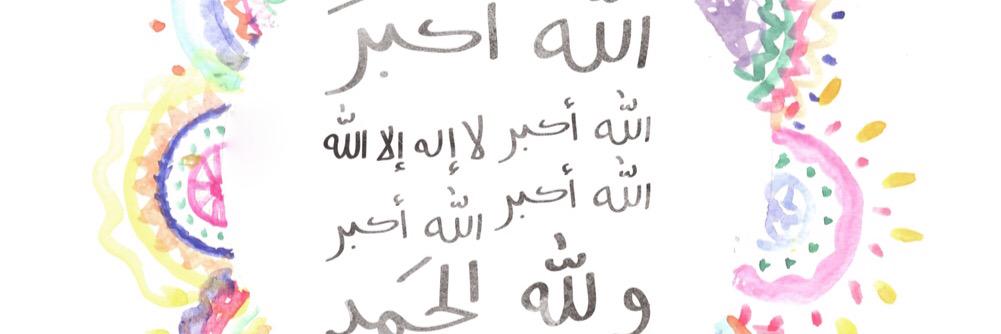 الله أكبرَ
الله أكبر لا إله إلا الله
الله أكبر الله أكبر
ولله الحَمد